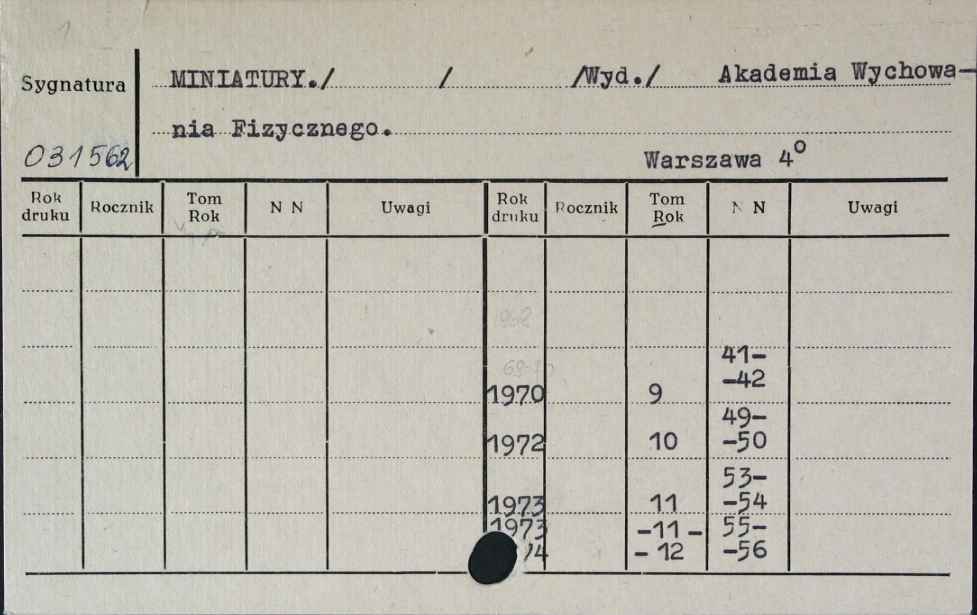 Sygnatura MINIATURY./ / /Wyd./ Akademia Wychowa-
nia Fizycznego.
031562 Warszawa 4°
Rok druku Rocznik Tom Rok N N Uwagi Rok druku Rocznik Tom Rok N N Uwagi
41-
1970 9 -42
49-
1972 10 -50
53-
1973 11 -54
1973 -11- 55-
-12 -56